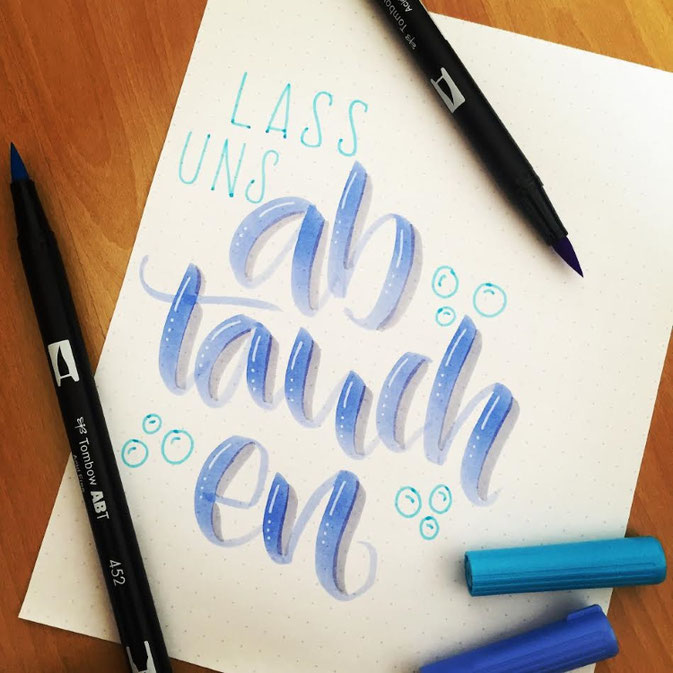 LASS
UNS
ab
tauch
en
Tombow ABT
452